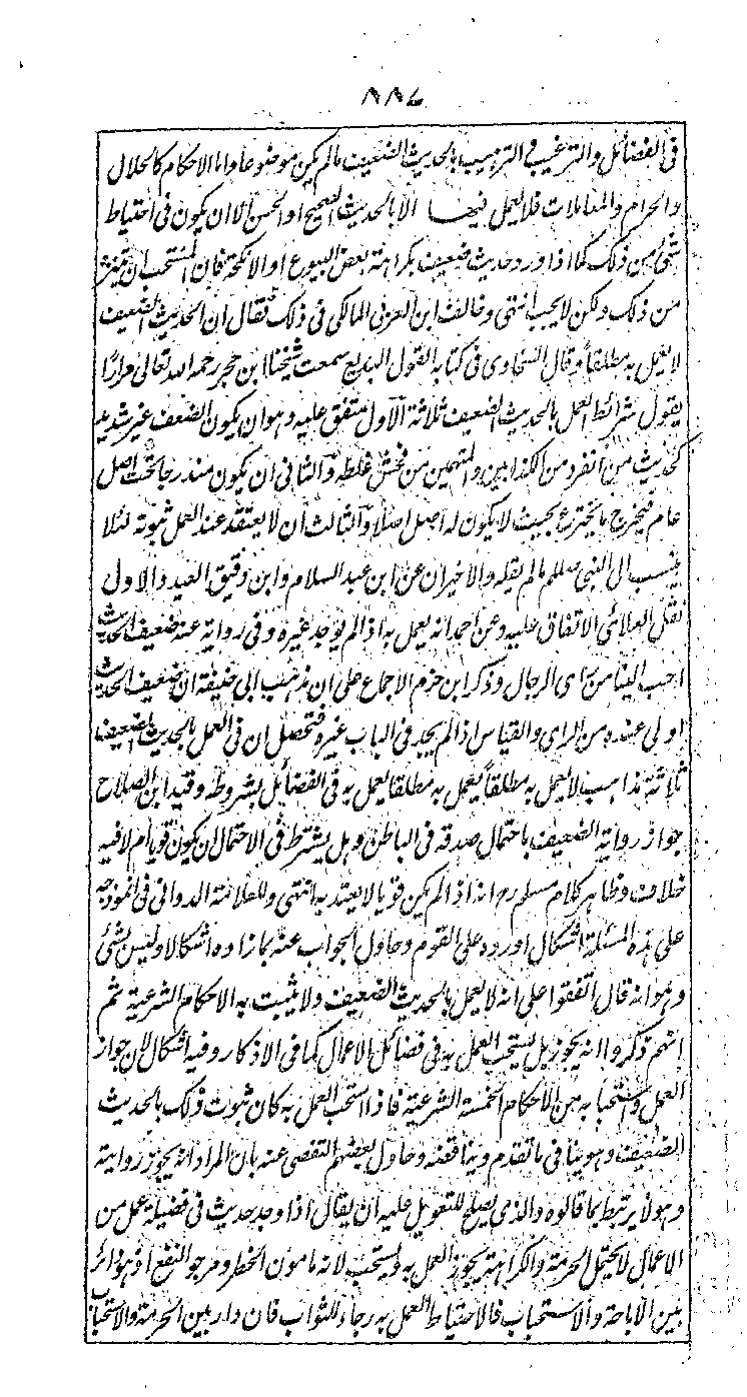 ٨٨٦
فی الفضائل والترغیب والترهیب بالحدیث الضعیف مالم یکن موضوعا واما الاحکام کالحلال
والحرام والمعاملات فلا یعمل فیها الا بالحدیث الصحیح او الحسن الا ان یکون فی احتیاط
شئ من ذلک کما اذا ورد حدیث ضعیف بکراهة بعض البیوع او الانکحة فان المستحب ان یتنزه
من ذلک ولکن لا یجب انتهی وخالف ابن العربی المالکی فی ذلک فقال ان الحدیث الضعیف
لا یعمل به مطلقا وقال السخاوی فی کتابه القول البدیع سمعت شیخنا ابن حجر رحمه الله تعالی مرارا
یقول شرائط العمل بالحدیث الضعیف ثلاثة الاول متفق علیه وهو ان یکون الضعف غیر شدید
کحدیث من انفرد من الکذابین والمتهمین من فحش غلطه والثانی ان یکون مندرجا تحت اصل
عام فیخرج ما یخترع بحیث لا یکون له اصل اصلا والثالث ان لا یعتقد عند العمل ثبوته لئلا
ینسب الی النبی صلعم مالم یقله والاخیران عن ابن عبد السلام وابن دقیق العید والاول
نقل العلائی الاتفاق علیه وعن احمد انه یعمل به اذا لم یوجد غیره وفی روایة عنه ضعیف الحدیث
احب الینا من رای الرجال وذکر ابن حزم الاجماع علی ان مذهب ابی حنیفة ان ضعیف الحدیث
اولی عنده من الرای والقیاس اذا لم یجد فی الباب غیره فتحصل ان فی العمل بالحدیث الضعیف
ثلاثة مذاهب لا یعمل به مطلقا یعمل به مطلقا یعمل به فی الفضائل بشروطه وقید ابن الصلاح
جواز روایة الضعیف باحتمال صدقه فی الباطن وهل یشترط فی الاحتمال ان یکون قویا ام لا فیه
خلاف وظاهر کلام مسلم رح انه اذا لم یکن قویا لا یعتد به انتهی وللعلامة الدوانی فی انموذجه
علی هذه المسئلة اشکال اورده علی القوم وحاول الجواب عنه بما زاده اشکالا ولیس بشئ
وهو انه قال اتفقوا علی انه لا یعمل بالحدیث الضعیف ولا یثبت به الاحکام الشرعیة ثم
انهم ذکروا انه یجوز بل یستحب العمل به فی فضائل الاعمال کما فی الاذکار وفیه اشکال لان جواز
العمل واستحبابه من الاحکام الخمسة الشرعیة فاذا استحب العمل به کان ثبوت ذلک بالحدیث
الضعیف وهو ینافی ما تقدم ویناقضه وحاول بعضهم التفصی عنه بان المراد انه یجوز روایته
وهو لا یرتبط بما قالوه والذی یصلح للتعویل علیه ان یقال اذا وجد حدیث فی فضیلة عمل من
الاعمال لا یحتمل الحرمة والکراهة یجوز العمل به ویستحب لانه مامون الخطر ومرجو النفع اذ هو دائر
بین الاباحة والاستحباب فالاحتیاط العمل به رجاء للثواب فان دار بین الحرمة والاستحباب